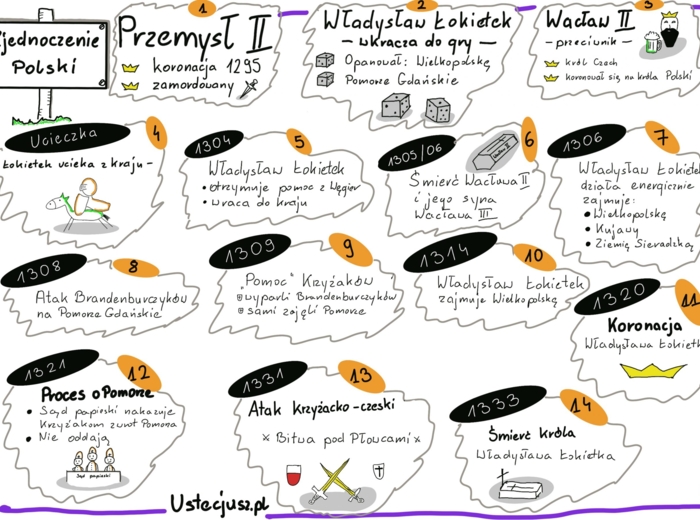 jednoczenie
Polski
1
Przemysł II
koronacja 1295
zamordowany
2
Władysław Łokietek
- wkracza do gry -
Opanował: Wielkopolskę
Pomorze Gdańskie
3
Wacław II
- przeciwnik -
król Czech
koronował się na króla Polski
Ucieczka
4
Łokietek ucieka z kraju -
1304
5
Władysław Łokietek
• otrzymuje pomoc z Węgier
• wraca do kraju
1305/06
6
Wacław II
Śmierć Wacława II
i jego syna
Wacława III
1306
7
Władysław Łokietek
działa energicznie
zajmuje:
• Wielkopolskę
• Kujawy
• Ziemię Sieradzką
1308
8
Atak Brandenburczyków
na Pomorze Gdańskie
1309
9
"Pomoc" Krzyżaków
wyparli Brandenburczyków
sami zajęli Pomorze
1314
10
Władysław Łokietek
zajmuje Wielkopolskę
1320
11
Koronacja
Władysława Łokietka
1321
12
Proces o Pomorze
• Sąd papieski nakazuje
Krzyżakom zwrot Pomorza
• Nie oddają
Sąd papieski
1331
13
Atak Krzyżacko-czeski
x Bitwa pod Płowcami x
1333
14
Śmierć króla
Władysława Łokietka
Ustecjusz.pl